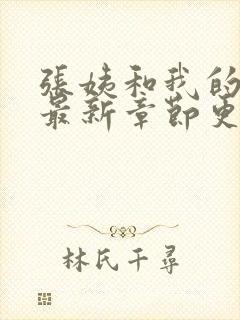 張姨和我的
最新章節更
林氏千尋